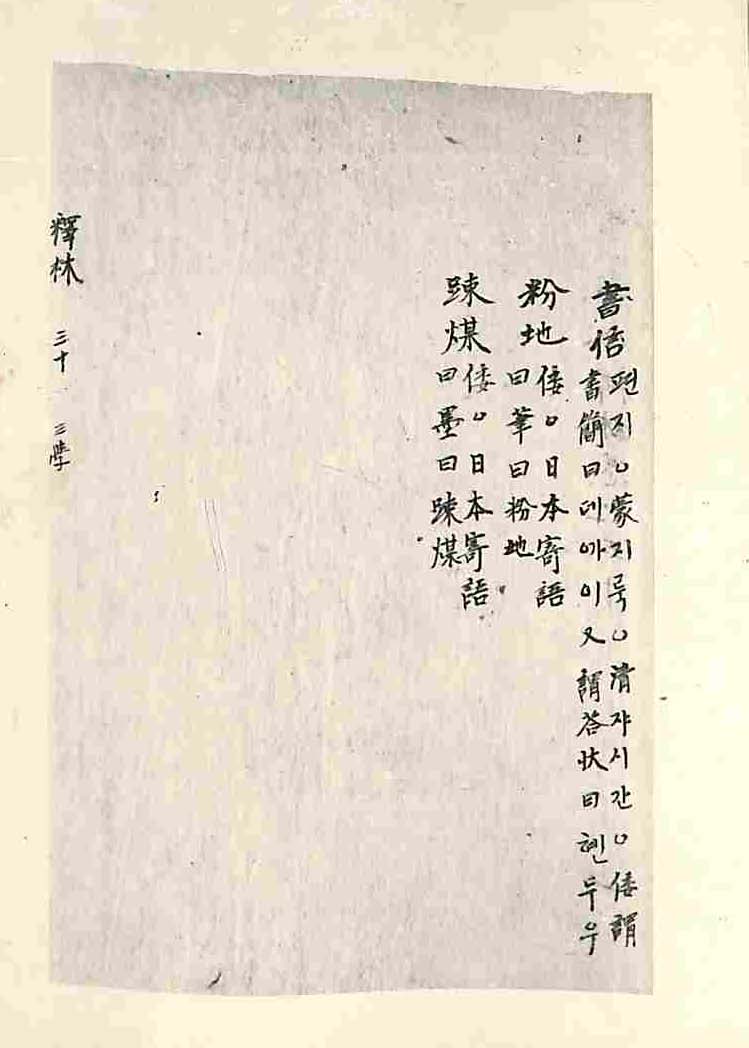 書信
편지○蒙지국○清쟈시간○倭謂
書簡曰데까이又謂答狀曰헨두우
粉地
倭○日本寄語
曰筆曰粉地
踈煤
倭○日本寄語
曰墨曰踈煤
釋林 三十 三學